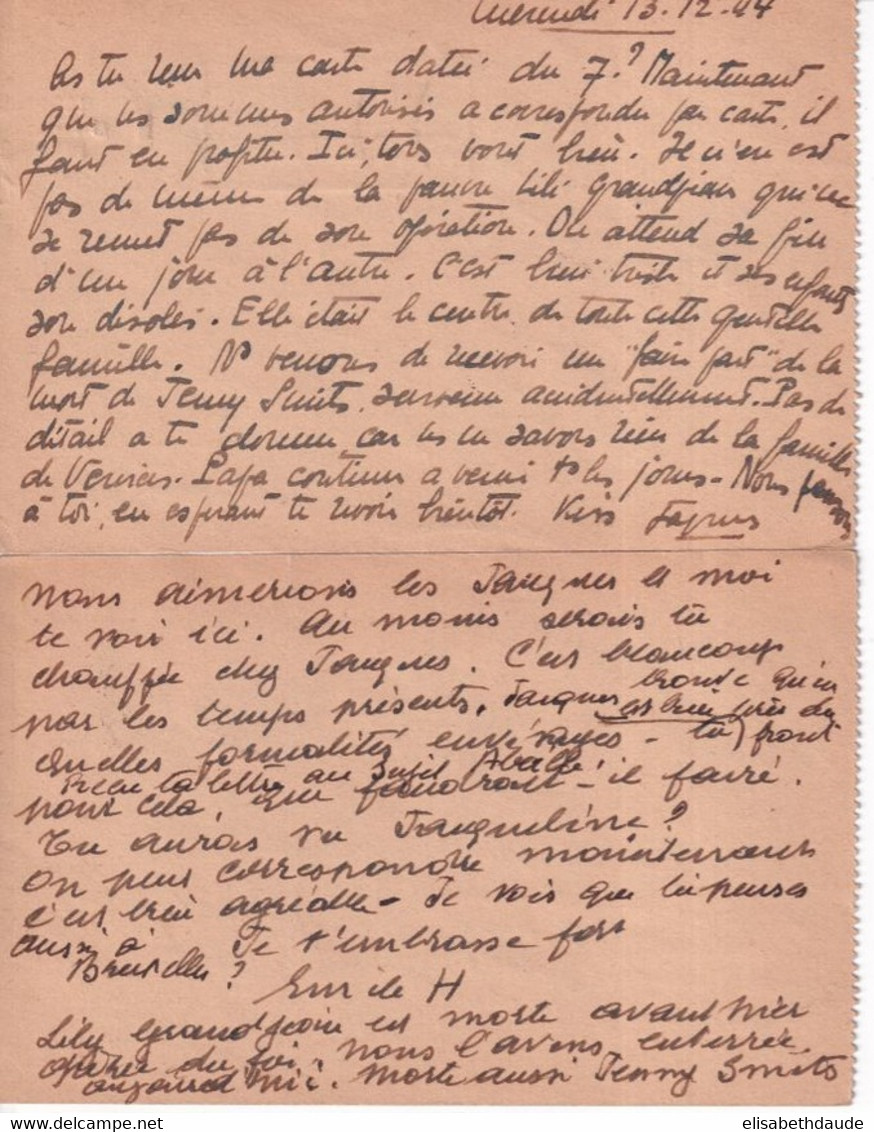 Mercredi 13.12.44
As tu reçu ma carte datée du 7? Maintenant
que ns sommes autorisés a correspondre par carte, il
faut en profiter. Ici, tous vont bien. Il n'en est
pas de même de la pauvre Lili Grandjean qui ne
se remet pas de son opération. On attend sa fin
d'un jour à l'autre. C'est bien triste et ses enfants
son désolés. Elle était le centre de toute cette gentille
famille. Ns venons de recevoir un "faire part" de la
mort de Jenny Smits, survenue accidentellement. Pas de
détail a te donner car ns ne savons rien de la famille
de Verviers. Papa continue a venir ts les jours - Nous pensons
à toi, en espérant te revoir bientôt. Kiss Jaques
nous aimerions les Jacques et moi
te voir ici. Au moins serais tu
chauffée chez Jacques. C'est beaucoup
par les temps présents. Jacques trouve qu'on
est bien près du front
quelles formalités envisages-tu
Reçu ta lettre au sujet
pour cela, que faudrait-il faire.
Tu auras vu Jacqueline?
On peut correspondre maintenant
c'est bien agréable - Je vois que tu penses
aussi à Bruxelles?
Je t'embrasse fort
H
Lily Grandjean est morte avant hier
opérée du foi, nous l'avons enterrée
aujourd'hui. Morte aussi Jenny Smits
elisabethdaude